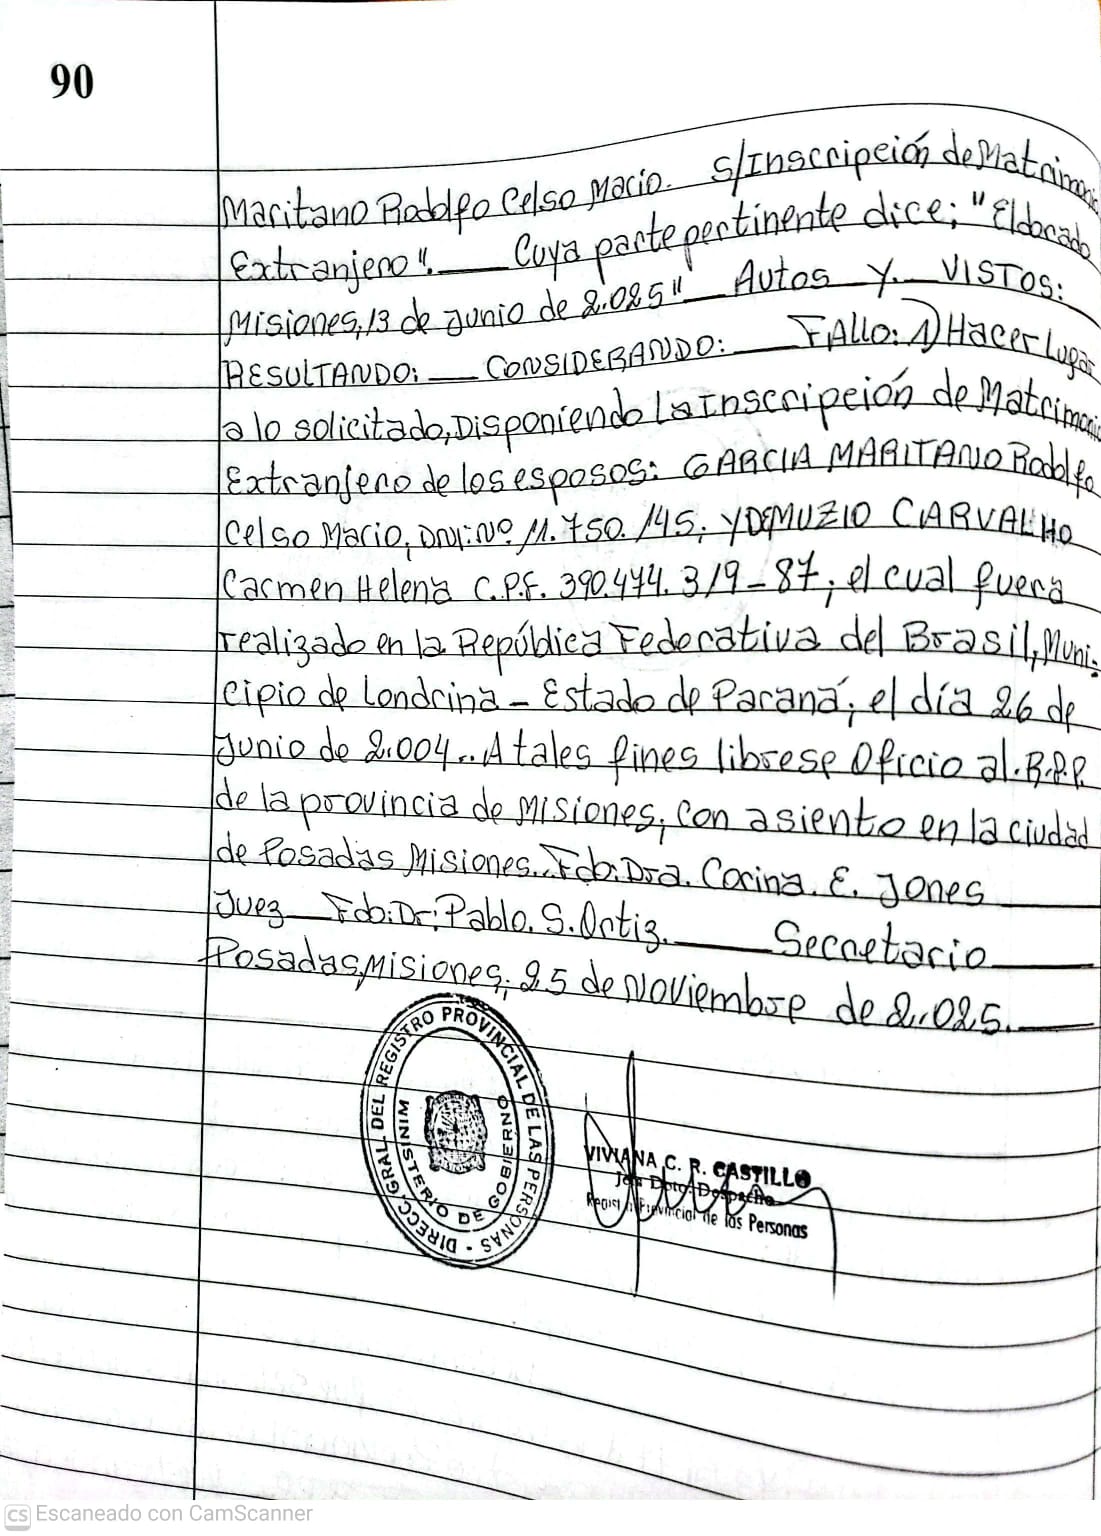 90
Maritano Rodolfo Celso Mario. S/Inscripción de Matrimonio
Extranjero". Cuya parte pertinente dice; "Eldorado
Misiones, 13 de Junio de 2.025" Autos Y. VISTOS:
RESULTANDO: CONSIDERANDO: FALLO: 1) Hacer Lugar
a lo solicitado, Disponiendo La Inscripción de Matrimonio
Extranjero de los esposos: GARCIA MARITANO Rodolfo
Celso Mario, DNI: Nº 11.750.145; Y DEMUZIO CARVALHO
Carmen Helena C.P.F. 390.474.319-87; el cual fuera
realizado en la República Federativa del Brasil, Muni-
cipio de Londrina - Estado de Paraná; el día 26 de
Junio de 2.004.. A tales fines librese Oficio al. R.P.P.
de la provincia de Misiones; con asiento en la ciudad
de Posadas Misiones.. Fdo: Dra. Corina. E. Jones
Juez Fdo: Dr: Pablo. S. Ortiz. Secretario
Posadas, Misiones; 25 de Noviembre de 2.025.
DIRECC. GRAL. DEL REGISTRO PROVINCIAL DE LAS PERSONAS -
MINISTERIO DE GOBIERNO
VIVIANA C. R. CASTILLO
Jefa Dpto. Despacho
Registro Provincial de las Personas
CS Escaneado con CamScanner